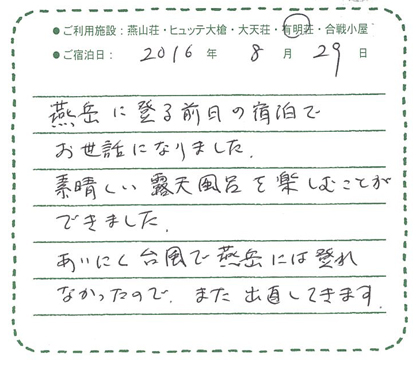 ● ご利用施設：燕山荘・ヒュッテ大槍・大天荘・有明荘・合戦小屋
● ご宿泊日： 2016 年 8 月 29 日
燕岳に登る前日の宿泊で
お世話になりました.
素晴しい露天風呂を楽しむことが
できました.
あいにく台風で燕岳には登れ
なかったので. また出直してきます.